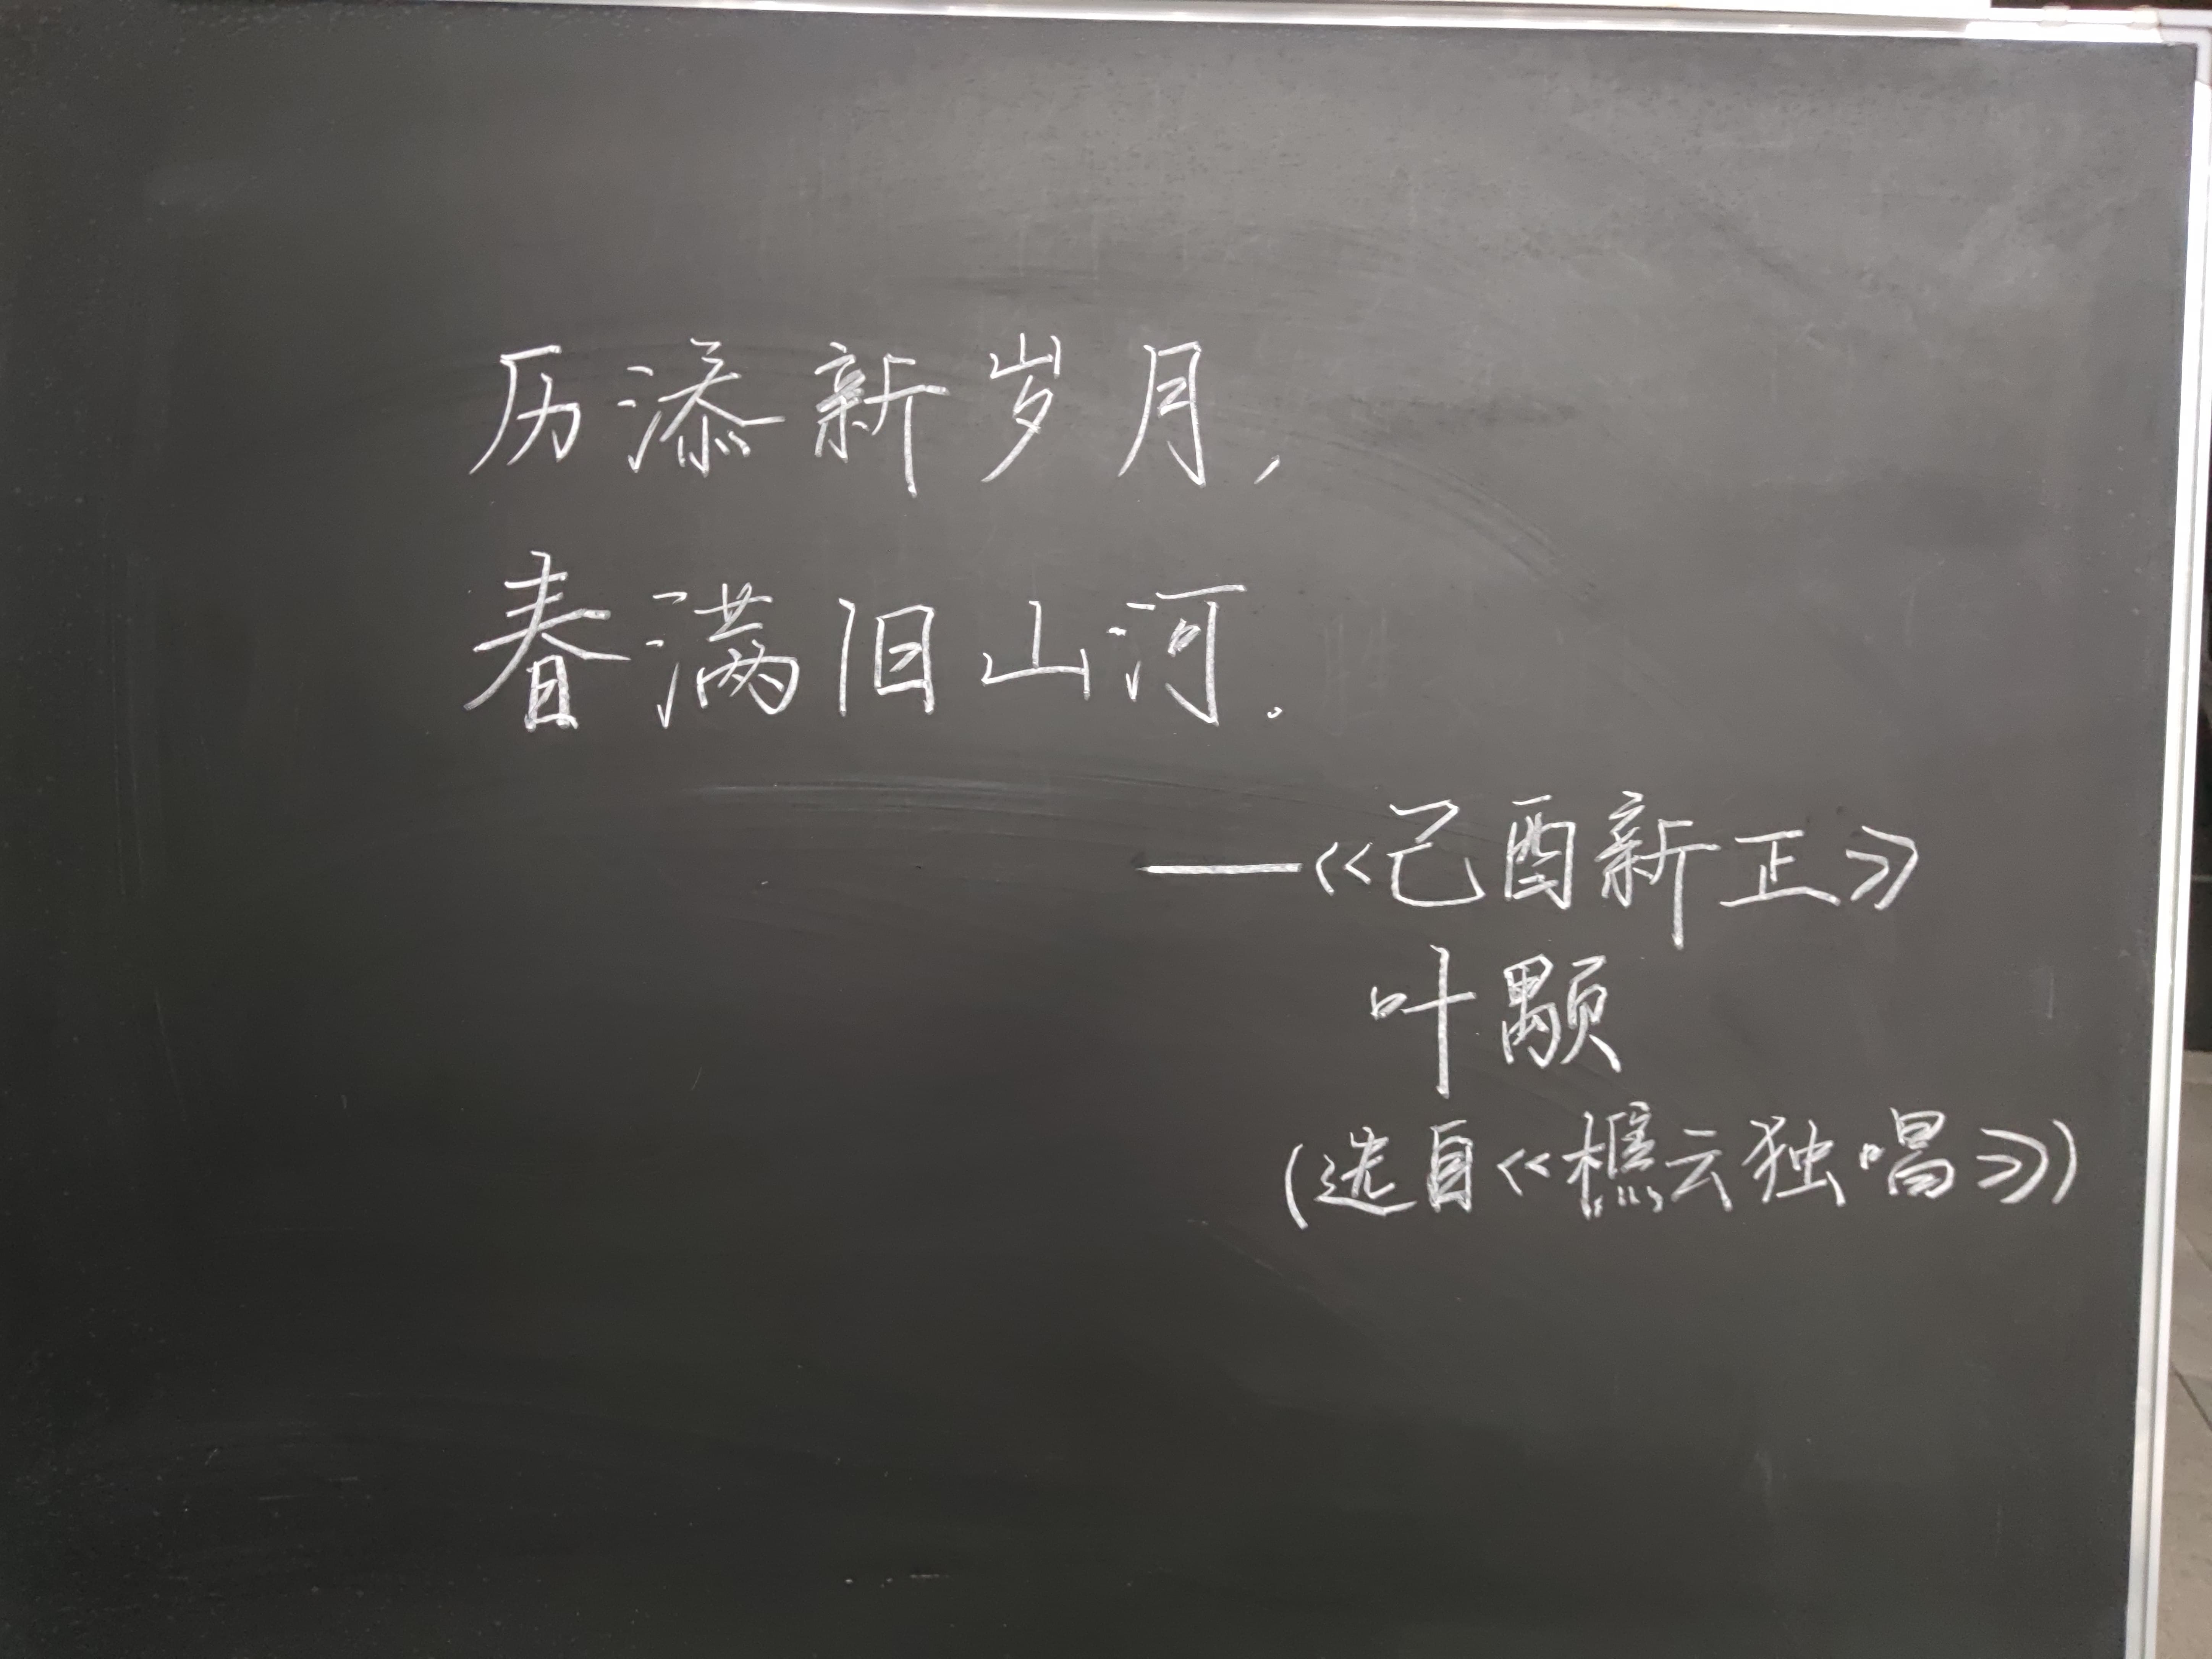 历添新岁月，
春满旧山河。
——《己酉新正》
叶颙
（选自《樵云独唱》）